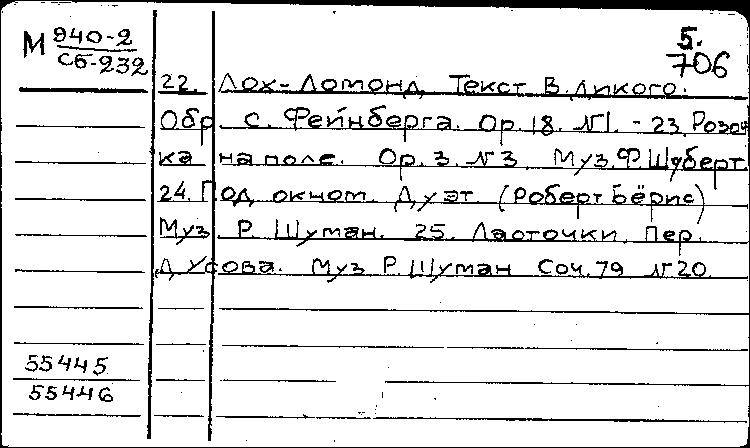 М 940-2
Сб-232
5.
706
22. Лох-Ломонд. Текст В. Дикого.
Обр. С. Фейнберга. Ор. 18. №1. - 23. Розоч
ка на поле. Ор. 3. №3. Муз. Ф. Шуберт.
24. Под окном. Дуэт. (Роберт Бёрнс)
Муз. Р. Шуман. 25. Ласточки. Пер.
Д. Усова. Муз. Р. Шуман Соч. 79 №20.
55445
55446